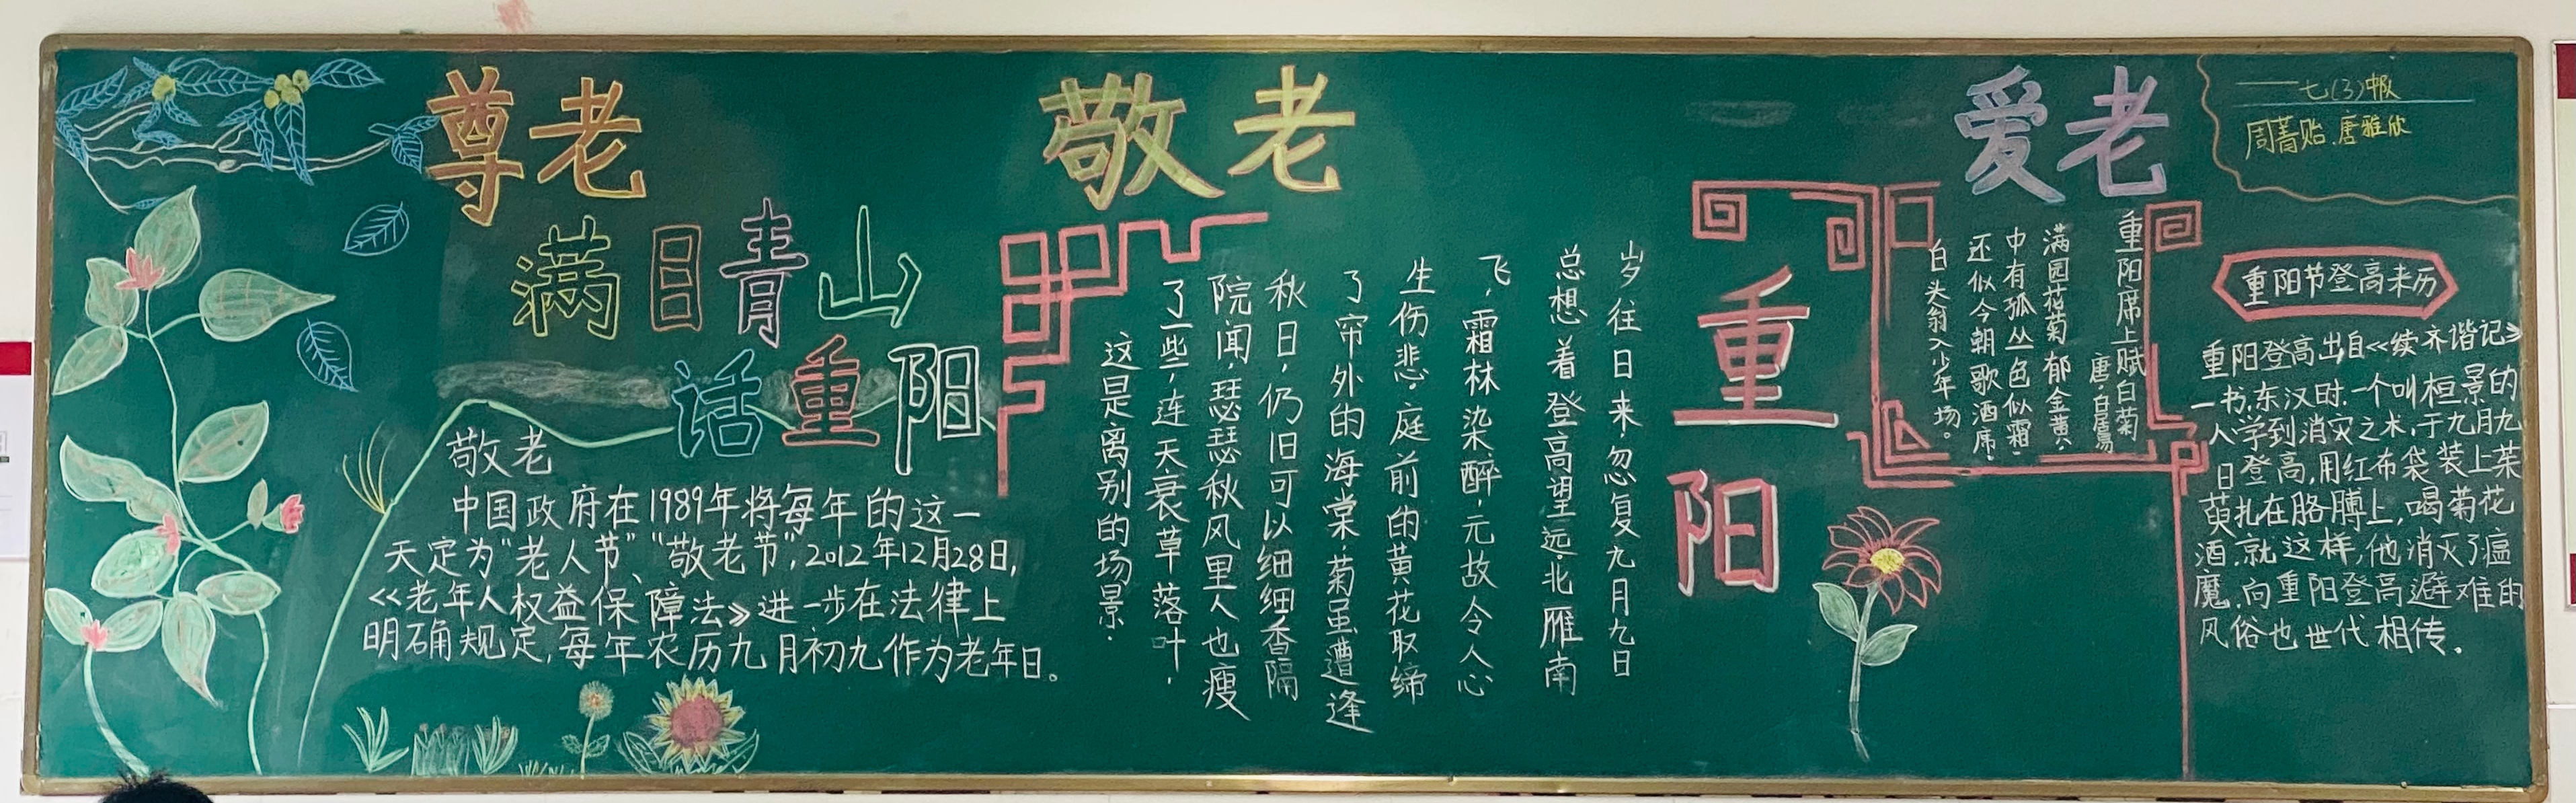 尊老
敬老
爱老
满目青山
话重阳
敬老
中国政府在1989年将每年的这一
天定为“老人节”、“敬老节”,2012年12月28日,
《老年人权益保障法》进一步在法律上
明确规定,每年农历九月初九作为老年日。
岁往日来,忽复九月九日
总想着登高望远,北雁南
飞,霜林染醉,无故令人心
生伤悲,庭前的黄花取缔
了帘外的海棠,菊虽遭逢
秋日,仍旧可以细细香隔
院闻,瑟瑟秋风里人也瘦
了一些,连天衰草落叶,
这是离别的场景.
重阳
重阳席上赋白菊
唐·白居易
满园花菊郁金黄,
中有孤丛色似霜.
还似今朝歌酒席,
白头翁入少年场。
——七(3)中队
周菁贻.唐雅欣
重阳节登高来历
重阳登高出自《续齐谐记》
一书.东汉时.一个叫桓景的
人学到消灾之术,于九月九
日登高,用红布袋装上茱
萸扎在胳膊上,喝菊花
酒.就这样,他消灭了瘟
魔.向重阳登高避难的
风俗也世代相传.